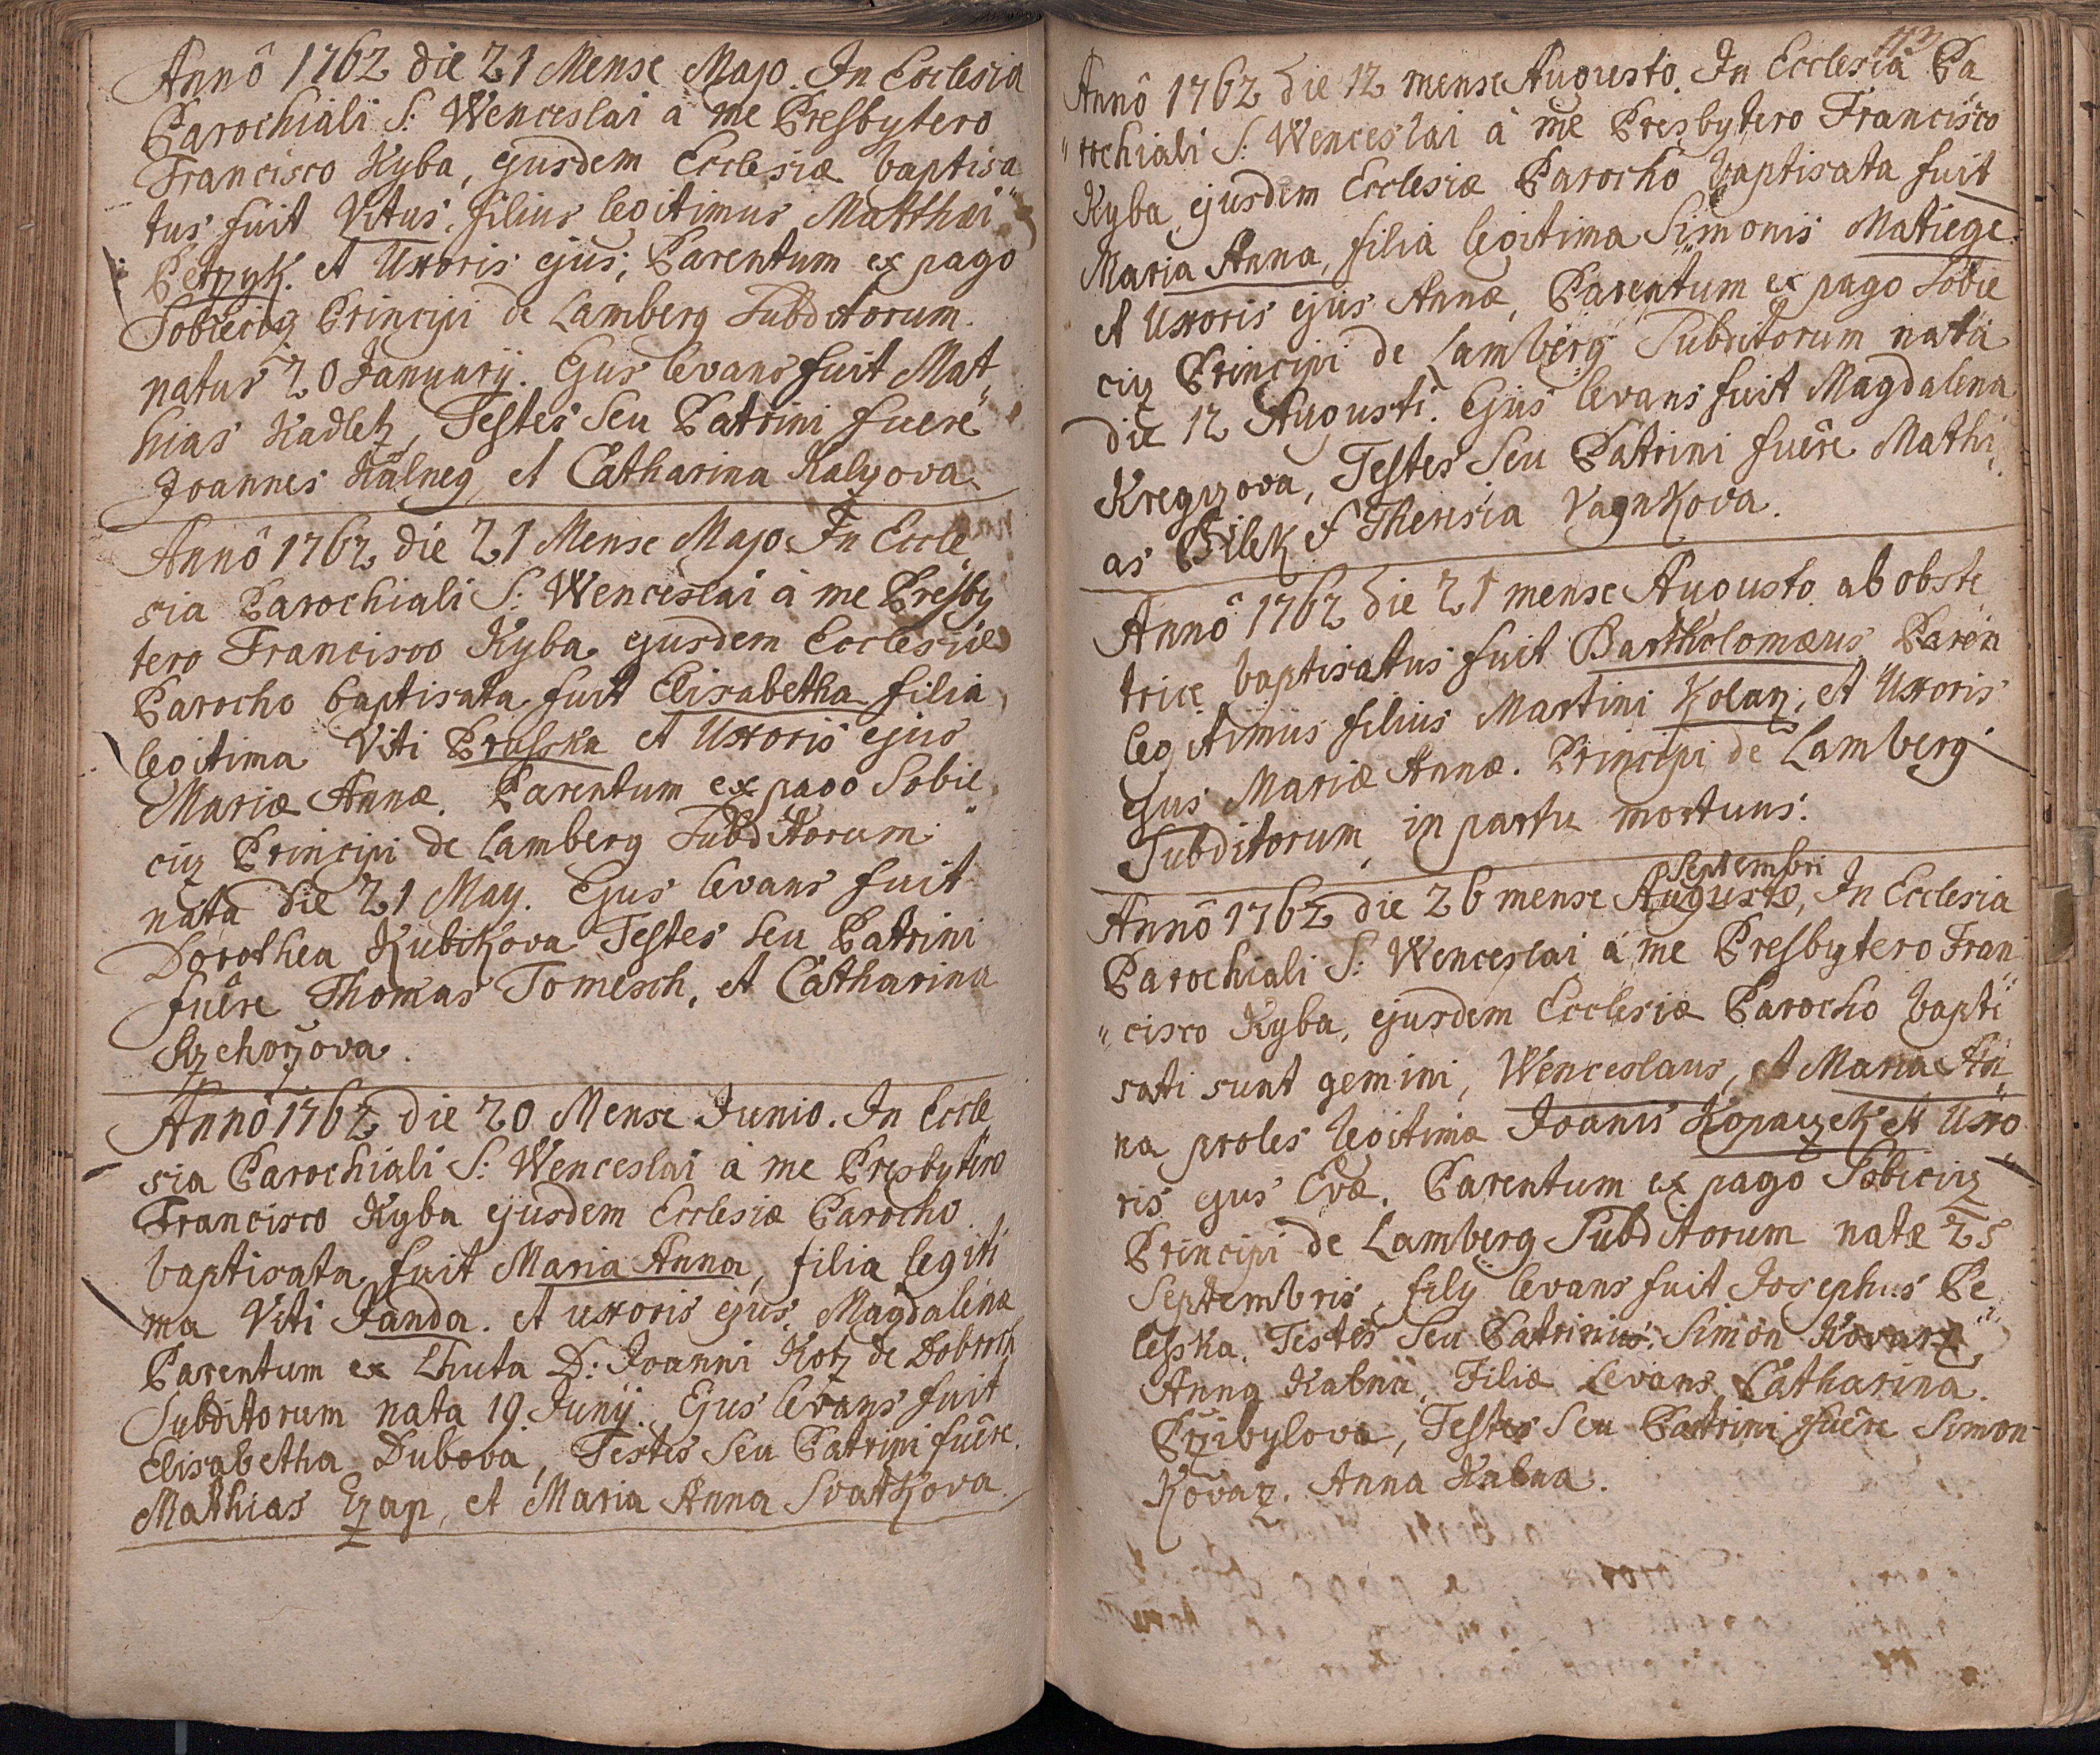 Annô 1762 die 21 Mense Majo. In Ecclesia
Parochiali S: Wenceslai à me Presbytero
Francisco Kyba, ejusdem Ecclesiæ baptisa
tus fuit Vitus, filius legitimus Matthæi
Petrzyk. et Uxoris ejus, Parentum ex pago
Sobiecicz Principi de Lamberg Subditorum.
natus 20 January. Ejus levans fuit Mat„
hias Kadletz, Testes seu Patrini fuere
Joannes Kalneg, et Catharina Kalzova.
Annô 1762 die 21 Mense Majo In Eccle„
sia Parochiali S: Wenceslai à me Presby
tero Francisco Kyba ejusdem Ecclesiæ
Parocho baptisata fuit Elisabetha filia
legitima Viti Prusska et Uxoris ejus
Mariæ Annæ. Parentum ex pago Sobie„
ciz Principi de Lamberg Subditorum
nata die 21 May. Ejus levans fuit
Dorothea Kubikova Testes seu Patrini
fuêre Thomas Tomesch, et Catharina
Annô 1762 die 20 Mense Junio. In Eccle
sia Parochiali S: Wenceslai à me Presbytero
Francisco Kyba ejusdem Ecclesiæ Parocho
baptisata fuit Maria Anna, filia legiti
ma Viti Janda. et uxoris ejus, Magdalena
Parentum ex Lhuta D: Joanni Kotz de Dobrsch
Subditorum nata 19 Junÿ. Ejus levans fuit
Elisabetha Dubova, Testes Seu Patrini fuêre
Mathias Czap, et Maria Anna Svatkova.
Annô 1762 die 12 mense Augusto. In Ecclesia Pa
„rochiali S: Wenceslai à me Presbytero Francisco
Kyba ejusdem Ecclesiæ Parocho baptisata fuit
Maria Anna, filia legitima Simonis Matiege
et Uxoris ejus Annæ, Parentum ex pago Sobie
ciz Principi de Lamberg Subditorum nata
die 12 Augusti. Ejus levans fuit Magdalena
Kregzova, Testes Seu Patrini fuêre Mathi„
as Bilek et Theresia Vagnkova.
Annô 1762 die 21 mense Augusto ab obste
trice baptisatus fuit Bartholomæus
legitimus filius Martini Kolarz, et Uxoris
ejus Mariæ Annæ. Principi de Lamberg
Subditorum in partu mortuus.
Septembri
Annô 1762 die 26 mense Augusto, In Ecclesia
Parochiali S: Wenceslai à me Presbytero Fran
„cisco Kyba, ejusdem Ecclesiæ Parocho bapti
sati sunt gemini, Wenceslaus, et Maria An„
na proles legitimæ Joanis Kopaczek et Uxo
ris ejus Evæ. Parentum ex pago Sobiciz
Principi de Lamberg Subditorum natæ 25
Septembris, filÿ levans fuit Josephus Be„
lesska. Testes Seu Patrini Simon Kovarz
Anna Kabna, Filiæ Levans Catharina
Przibylova, Testes Seu Patrini fuêre Simon
Kovarz. Anna Kabna.